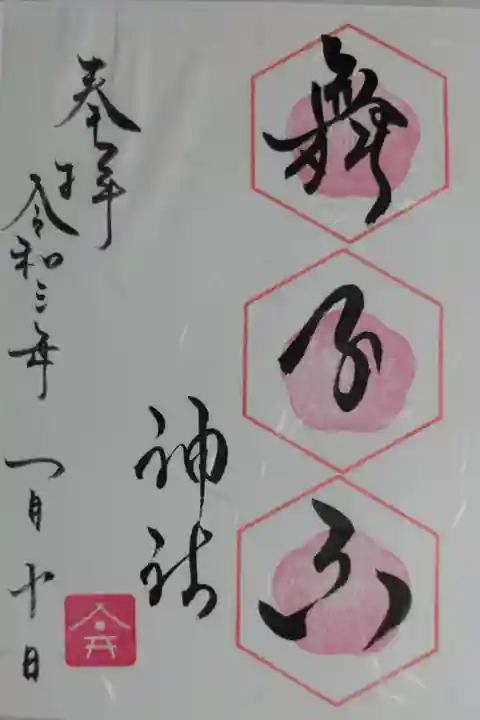 舞子六
神社
奉拝
于令和三年 一月十日